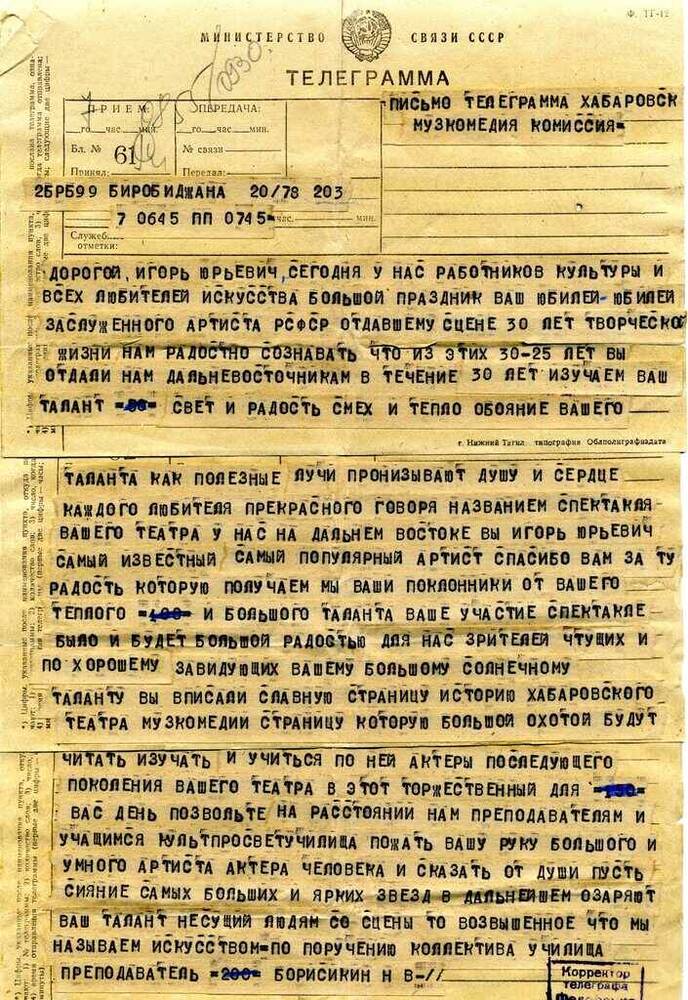 Ф. ТГ-12
МИНИСТЕРСТВО СВЯЗИ СССР
ТЕЛЕГРАММА
ПРИЕМ:
ПЕРЕДАЧА:
го час. мин.
го час. мин.
Бл. № 61
№ связи
Принял:
Передал:
ПИСЬМО ТЕЛЕГРАММА ХАБАРОВСК
МУЗКОМЕДИЯ КОМИССИЯ=
2БРБ99 БИРОБИДЖАНА 20/78 203
7 0645 ПП 0745= час. мин.
Служеб.
отметки:
ДОРОГОЙ, ИГОРЬ ЮРЬЕВИЧ, СЕГОДНЯ У НАС РАБОТНИКОВ КУЛЬТУРЫ И
ВСЕХ ЛЮБИТЕЛЕЙ ИСКУССТВА БОЛЬШОЙ ПРАЗДНИК ВАШ ЮБИЛЕЙ- ЮБИЛЕЙ
ЗАСЛУЖЕННОГО АРТИСТА РСФСР ОТДАВШЕМУ СЦЕНЕ 30 ЛЕТ ТВОРЧЕСКОЙ
ЖИЗНИ НАМ РАДОСТНО СОЗНАВАТЬ ЧТО ИЗ ЭТИХ 30-25 ЛЕТ ВЫ
ОТДАЛИ НАМ ДАЛЬНЕВОСТОЧНИКАМ В ТЕЧЕНИЕ 30 ЛЕТ ИЗУЧАЕМ ВАШ
ТАЛАНТ =50= СВЕТ И РАДОСТЬ СМЕХ И ТЕПЛО ОБОЯНИЕ ВАШЕГО
г. Нижний Тагил типография Облполиграфиздата
ТАЛАНТА КАК ПОЛЕЗНЫЕ ЛУЧИ ПРОНИЗЫВАЮТ ДУШУ И СЕРДЦЕ
КАЖДОГО ЛЮБИТЕЛЯ ПРЕКРАСНОГО ГОВОРЯ НАЗВАНИЕМ СПЕКТАКЛЯ
ВАШЕГО ТЕАТРА У НАС НА ДАЛЬНЕМ ВОСТОКЕ ВЫ ИГОРЬ ЮРЬЕВИЧ
САМЫЙ ИЗВЕСТНЫЙ САМЫЙ ПОПУЛЯРНЫЙ АРТИСТ СПАСИБО ВАМ ЗА ТУ
РАДОСТЬ КОТОРУЮ ПОЛУЧАЕМ МЫ ВАШИ ПОКЛОННИКИ ОТ ВАШЕГО
ТЕПЛОГО =100= И БОЛЬШОГО ТАЛАНТА ВАШЕ УЧАСТИЕ СПЕКТАКЛЕ
БЫЛО И БУДЕТ БОЛЬШОЙ РАДОСТЬЮ ДЛЯ НАС ЗРИТЕЛЕЙ ЧТУЩИХ И
ПО ХОРОШЕМУ ЗАВИДУЮЩИХ ВАШЕМУ БОЛЬШОМУ СОЛНЕЧНОМУ
ТАЛАНТУ ВЫ ВПИСАЛИ СЛАВНУЮ СТРАНИЦУ ИСТОРИЮ ХАБАРОВСКОГО
ТЕАТРА МУЗКОМЕДИИ СТРАНИЦУ КОТОРУЮ БОЛЬШОЙ ОХОТОЙ БУДУТ
ЧИТАТЬ ИЗУЧАТЬ И УЧИТЬСЯ ПО НЕЙ АКТЕРЫ ПОСЛЕДУЮЩЕГО
ПОКОЛЕНИЯ ВАШЕГО ТЕАТРА В ЭТОТ ТОРЖЕСТВЕННЫЙ ДЛЯ =150=
ВАС ДЕНЬ ПОЗВОЛЬТЕ НА РАССТОЯНИИ НАМ ПРЕПОДАВАТЕЛЯМ И
УЧАЩИМСЯ КУЛЬТПРОСВЕТУЧИЛИЩА ПОЖАТЬ ВАШУ РУКУ БОЛЬШОГО И
УМНОГО АРТИСТА АКТЕРА ЧЕЛОВЕКА И СКАЗАТЬ ОТ ДУШИ ПУСТЬ
СИЯНИЕ САМЫХ БОЛЬШИХ И ЯРКИХ ЗВЕЗД В ДАЛЬНЕЙШЕМ ОЗАРЯЮТ
ВАШ ТАЛАНТ НЕСУЩИЙ ЛЮДЯМ СО СЦЕНЫ ТО ВОЗВЫШЕННОЕ ЧТО МЫ
НАЗЫВАЕМ ИСКУССТВОМ=ПО ПОРУЧЕНИЮ КОЛЛЕКТИВА УЧИЛИЩА
ПРЕПОДАВАТЕЛЬ =200= БОРИСИКИН Н В-//
Корректор
телеграфа